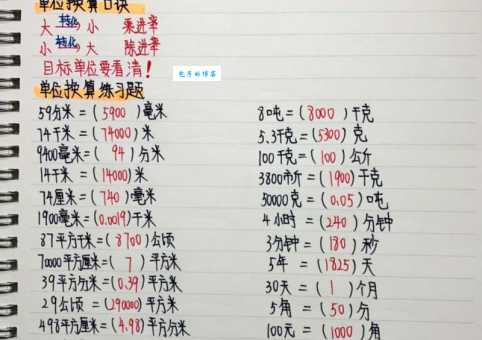 单位换算口诀
大 转化 小 乘进率
小 转化 大 除进率
目标单位要看清！
包亭的博客
单位换算练习题
59分米=(5900)毫米
74千米=(74000)米
9400毫米=(94)分米
14千米=(14000)米
74厘米=(740)毫米
1900毫米=(0.0019)千米
87平方千米=(8700)公顷
70000平方厘米=(7)平方米
39平方分米=(0.39)平方米
29公顷=(290000)平方米
498平方厘米=(4.98)平方分米
8吨=(8000)千克
5.3千克=(5300)克
100千克=(100)公斤
3800市斤=(1900)千克
50000克=(0.05)吨
4小时=(240)分钟
3分钟=(180)秒
5年=(1825)天
30天=(1)个月
5角=(50)分
100元=(1000)角